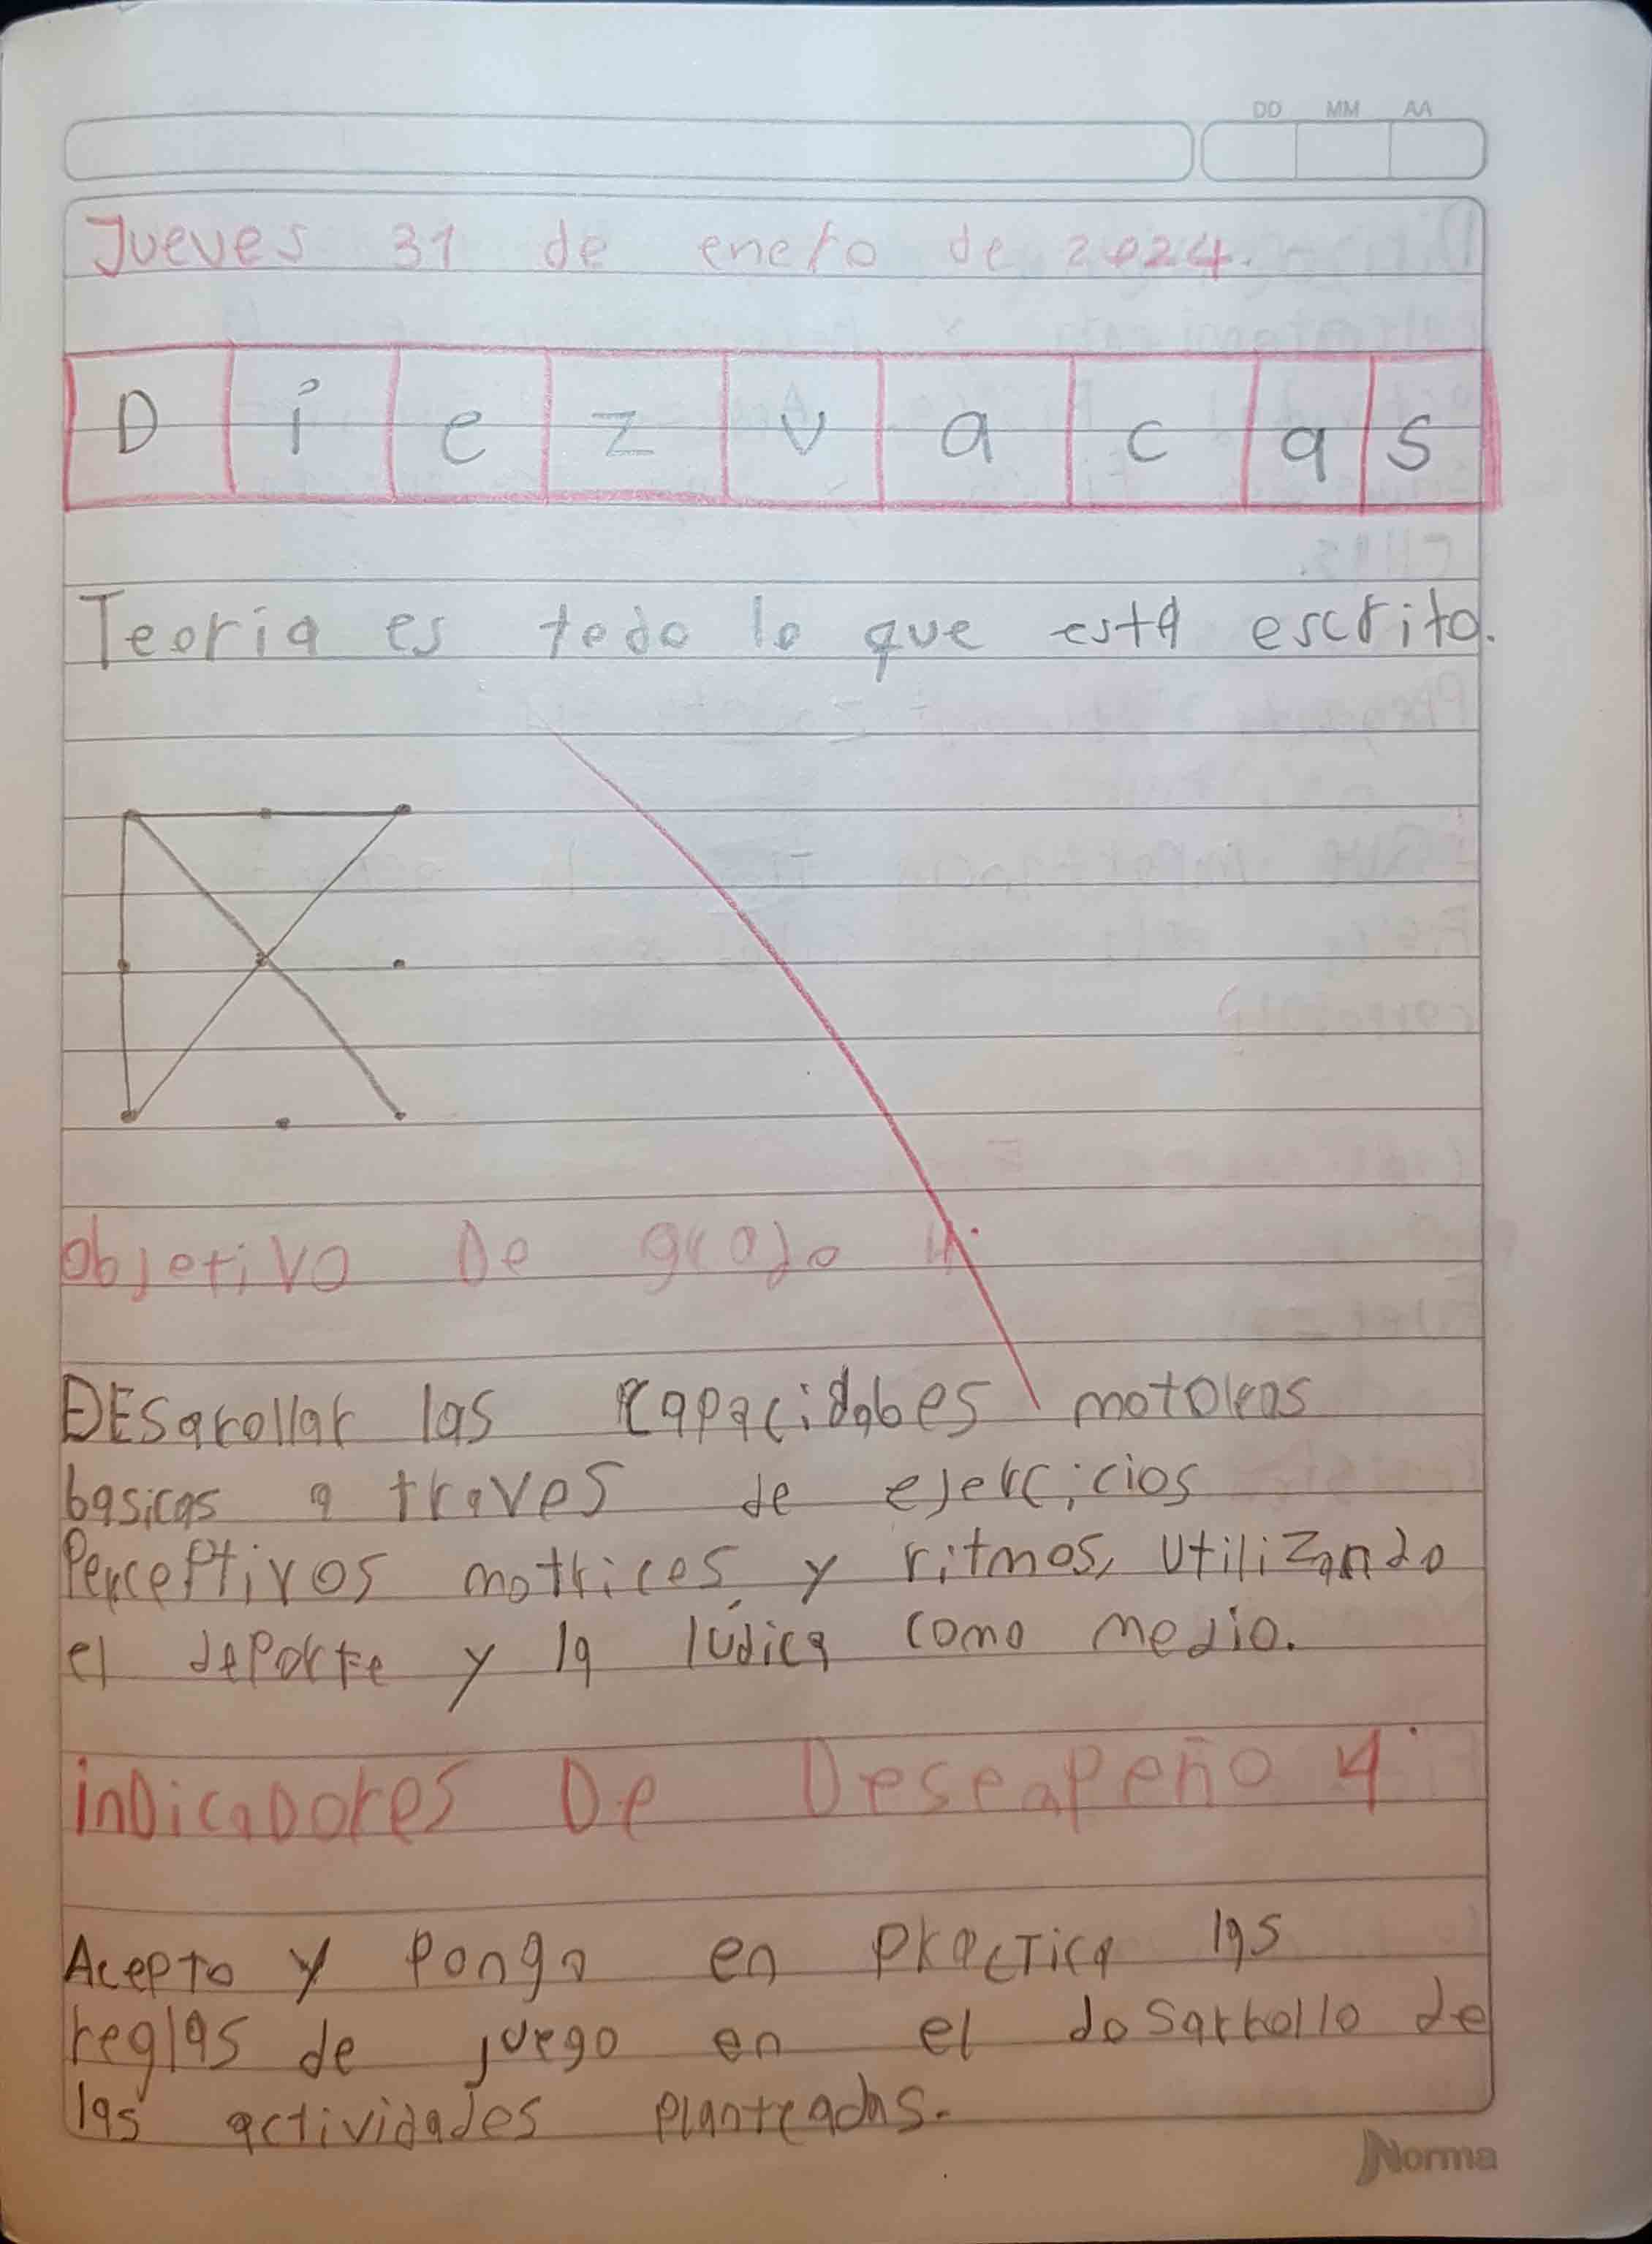 DD MM AA
Jueves 31 de enero de 2024.
D i e z v a c a s
Teoria es todo lo que está escrito.
objetivo De grado 4.
DESarollar las capacidabes motoras
basicas a traves de ejercicios
Perceptivos motrices y ritmos, utilizando
el deporte y la lúdica como medio.
inDicaDores De Deseapeño 4°
Acepto y Pongo en practica las
reglas de juego en el dosarrollo de
las actividades planteadas.
Norma